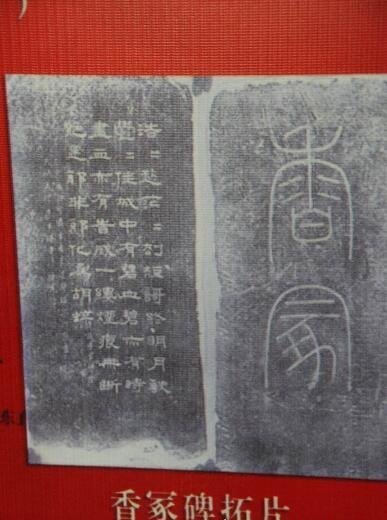 香冢
浩〻愁茫〻刧短歌終明月缺
鬱〻佳城中有碧血碧亦有時
盡血亦有時滅一縷煙痕無斷
絕是耶非耶化為胡蝶
香冢碑拓片
东